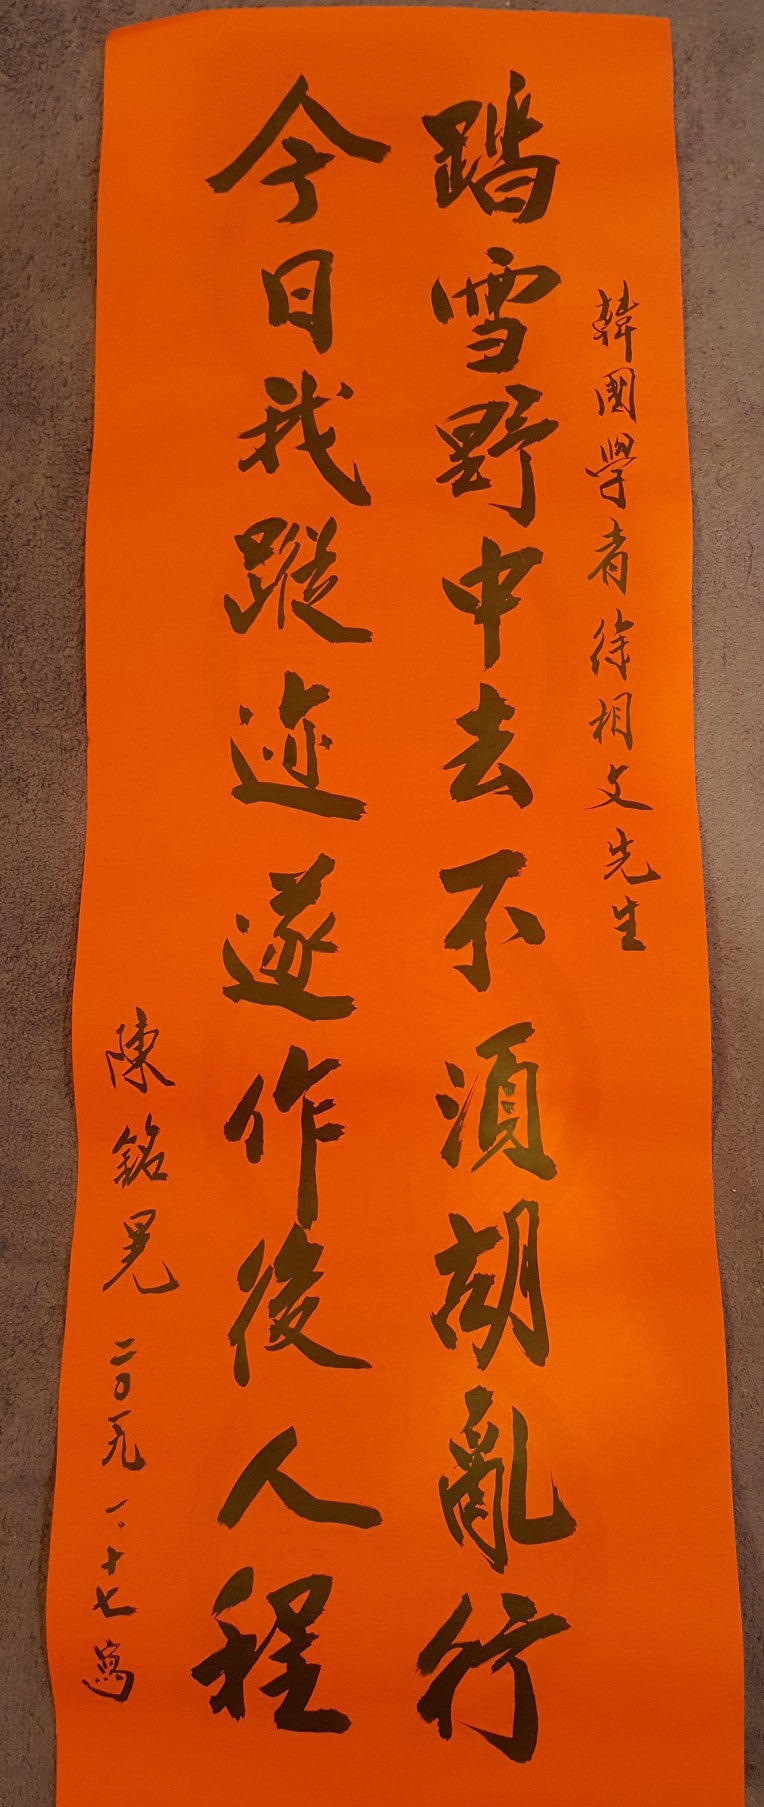 韓國學者徐相文先生
踏雪野中去不須胡亂行
今日我蹤迹遂作後人程
陳銘晃
二〇一九 一、十七寫